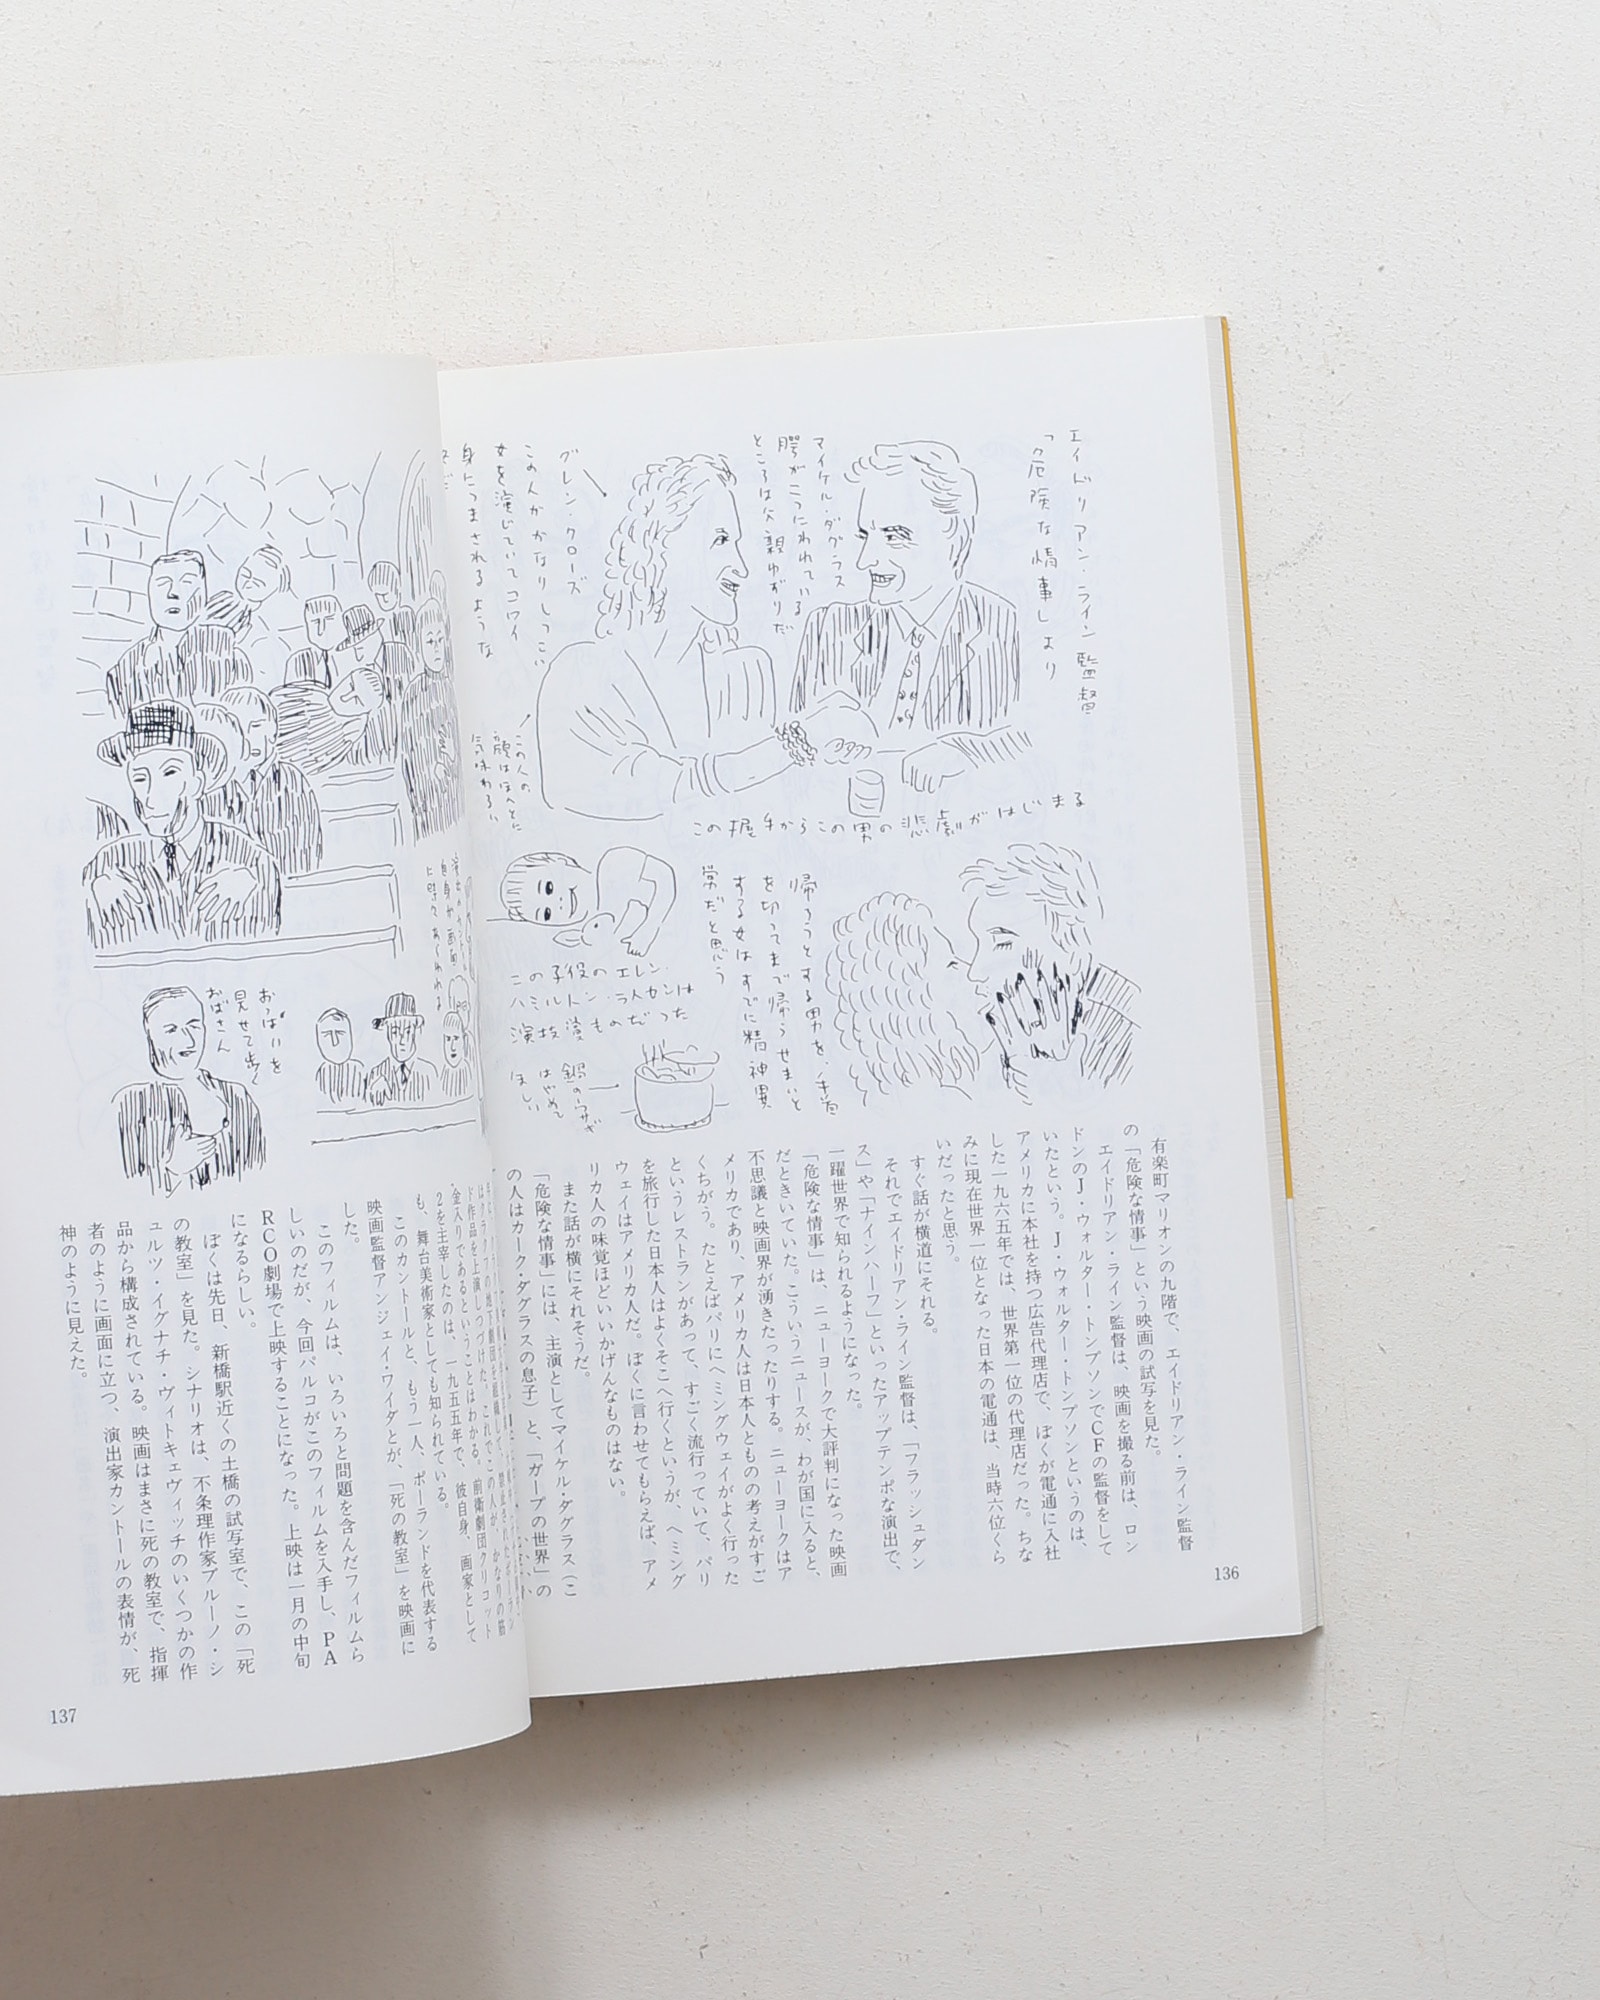 エイドリアン・ライン監督
「危険な情事」より
マイケル・ダグラス
腭が二つにわれている
ところは父親ゆずりだ
グレン・クローズ
この人かなりしつこい
女を演じていてコワイ
身につまされるような
この人の
顔はほんとに
気味わるい
この握手からこの男の悲劇がはじまる
帰ろうとする男を、手首
を切ってまで帰らせまいと
する女はすでに精神異
常だと思う
この子役のエレン・
ハミルトン・ラなカンは
演技賞ものだった
鍋のウサギ
はやめて
ほしい
有楽町マリオンの九階で、エイドリアン・ライン監督
の「危険な情事」という映画の試写を見た。
エイドリアン・ライン監督は、映画を撮る前は、ロン
ドンのJ・ウォルター・トンプソンでCFの監督をして
いたという。J・ウォルター・トンプソンというのは、
アメリカに本社を持つ広告代理店で、ぼくが電通に入社
した一九六五年では、世界第一位の代理店だった。ちな
みに現在世界一位となった日本の電通は、当時六位くら
いだったと思う。
すぐ話が横道にそれる。
それでエイドリアン・ライン監督は、「フラッシュダン
ス」や「ナインハーフ」といったアップテンポな演出で、
一躍世界で知られるようになった。
「危険な情事」は、ニューヨークで大評判になった映画
だときいていた。こういうニュースが、わが国に入ると、
不思議と映画界が湧きたったりする。ニューヨークはア
メリカであり、アメリカ人は日本人とものの考えがすご
くちがう。たとえばパリにヘミングウェイがよく行った
というレストランがあって、すごく流行っていて、パリ
を旅行した日本人はよくそこへ行くというが、ヘミング
ウェイはアメリカ人だ。ぼくに言わせてもらえば、アメ
リカ人の味覚ほどいいかげんなものはない。
また話が横にそれそうだ。
「危険な情事」には、主演としてマイケル・ダグラス（こ
の人はカーク・ダグラスの息子）と、「ガープの世界」の
136
おっぱいを
見せて歩く
おばさん
はクラクフの地下劇団を組織して、禁止されたポーラン
ド作品を上演しつづけた。これでこの人が、かなりの筋
金入りであるということはわかる。前衛劇団クリコット
2を主宰したのは、一九五五年で、彼自身、画家として
も、舞台美術家としても知られている。
このカントールと、もう一人、ポーランドを代表する
映画監督アンジェイ・ワイダとが、「死の教室」を映画に
した。
このフィルムは、いろいろと問題を含んだフィルムら
しいのだが、今回パルコがこのフィルムを入手し、PA
RCO劇場で上映することになった。上映は一月の中旬
になるらしい。
ぼくは先日、新橋駅近くの土橋の試写室で、この「死
の教室」を見た。シナリオは、不条理作家ブルーノ・シ
ュルツ・イグナチ・ヴィトキェヴィッチのいくつかの作
品から構成されている。映画はまさに死の教室で、指揮
者のように画面に立つ、演出家カントールの表情が、死
神のように見えた。
137